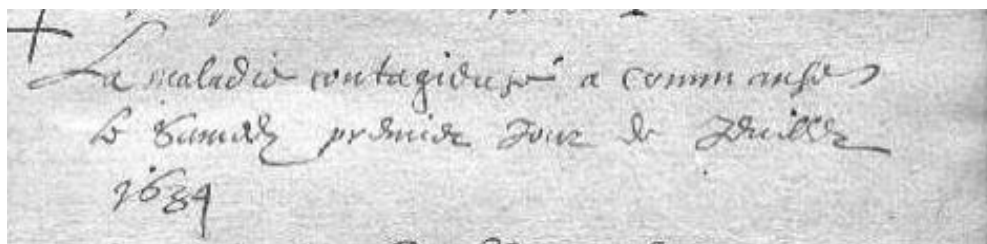 La maladie contagieuse a commansé
le samedi premier Jour de Jeuillet
1684